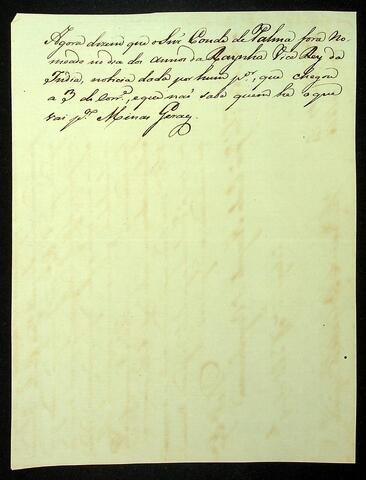 Agora dizem que o Snr Conde de Palma fora No-
meado no dia dos annos da Raynha Vice Rey da
India, noticia dada por hum p.ª, que chegou
a 3 do Corr.e, e que naõ sabe quem he o que
vai p.ª Minas Geraes.